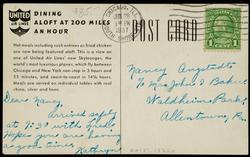 UNITED
AIR LINES
DINING
ALOFT AT 200 MILES
AN HOUR
Hot meals including such entrees as fried chicken
are now being featured aloft. This is a view in
one of United Air Lines' new Skylounges, the
world's most luxurious planes, which fly between
Chicago and New York non-stop in 3 hours and
55 minutes, and coast-to-coast in 15¼ hours.
Meals are served without additional charge on
all planes.
POST CARD
CHICAGO, ILL.
JUN 28
1937
1
Dear Nancy,
Arrived safely
at 9:30 with
Hope you are having
a good time
Kathryn
Nancy Angstadt
c/o Mrs John D Baker
Waldheim Park,
Allentown,
Pa.